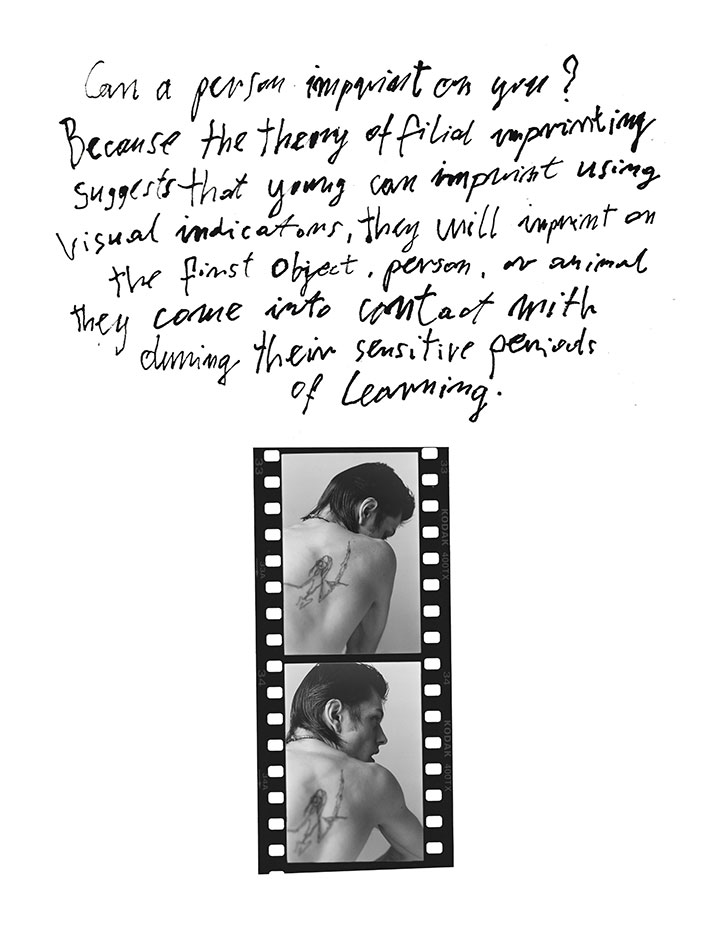 Can a person imprint on you?
Because the theory of filial imprinting
suggests that young can imprint using
visual indicators, they will imprint on
the first object, person, or animal
they come into contact with
during their sensitive periods
of learning.
33
33
KODAK 400TX
33A
34
34
KODAK 400TX
34A